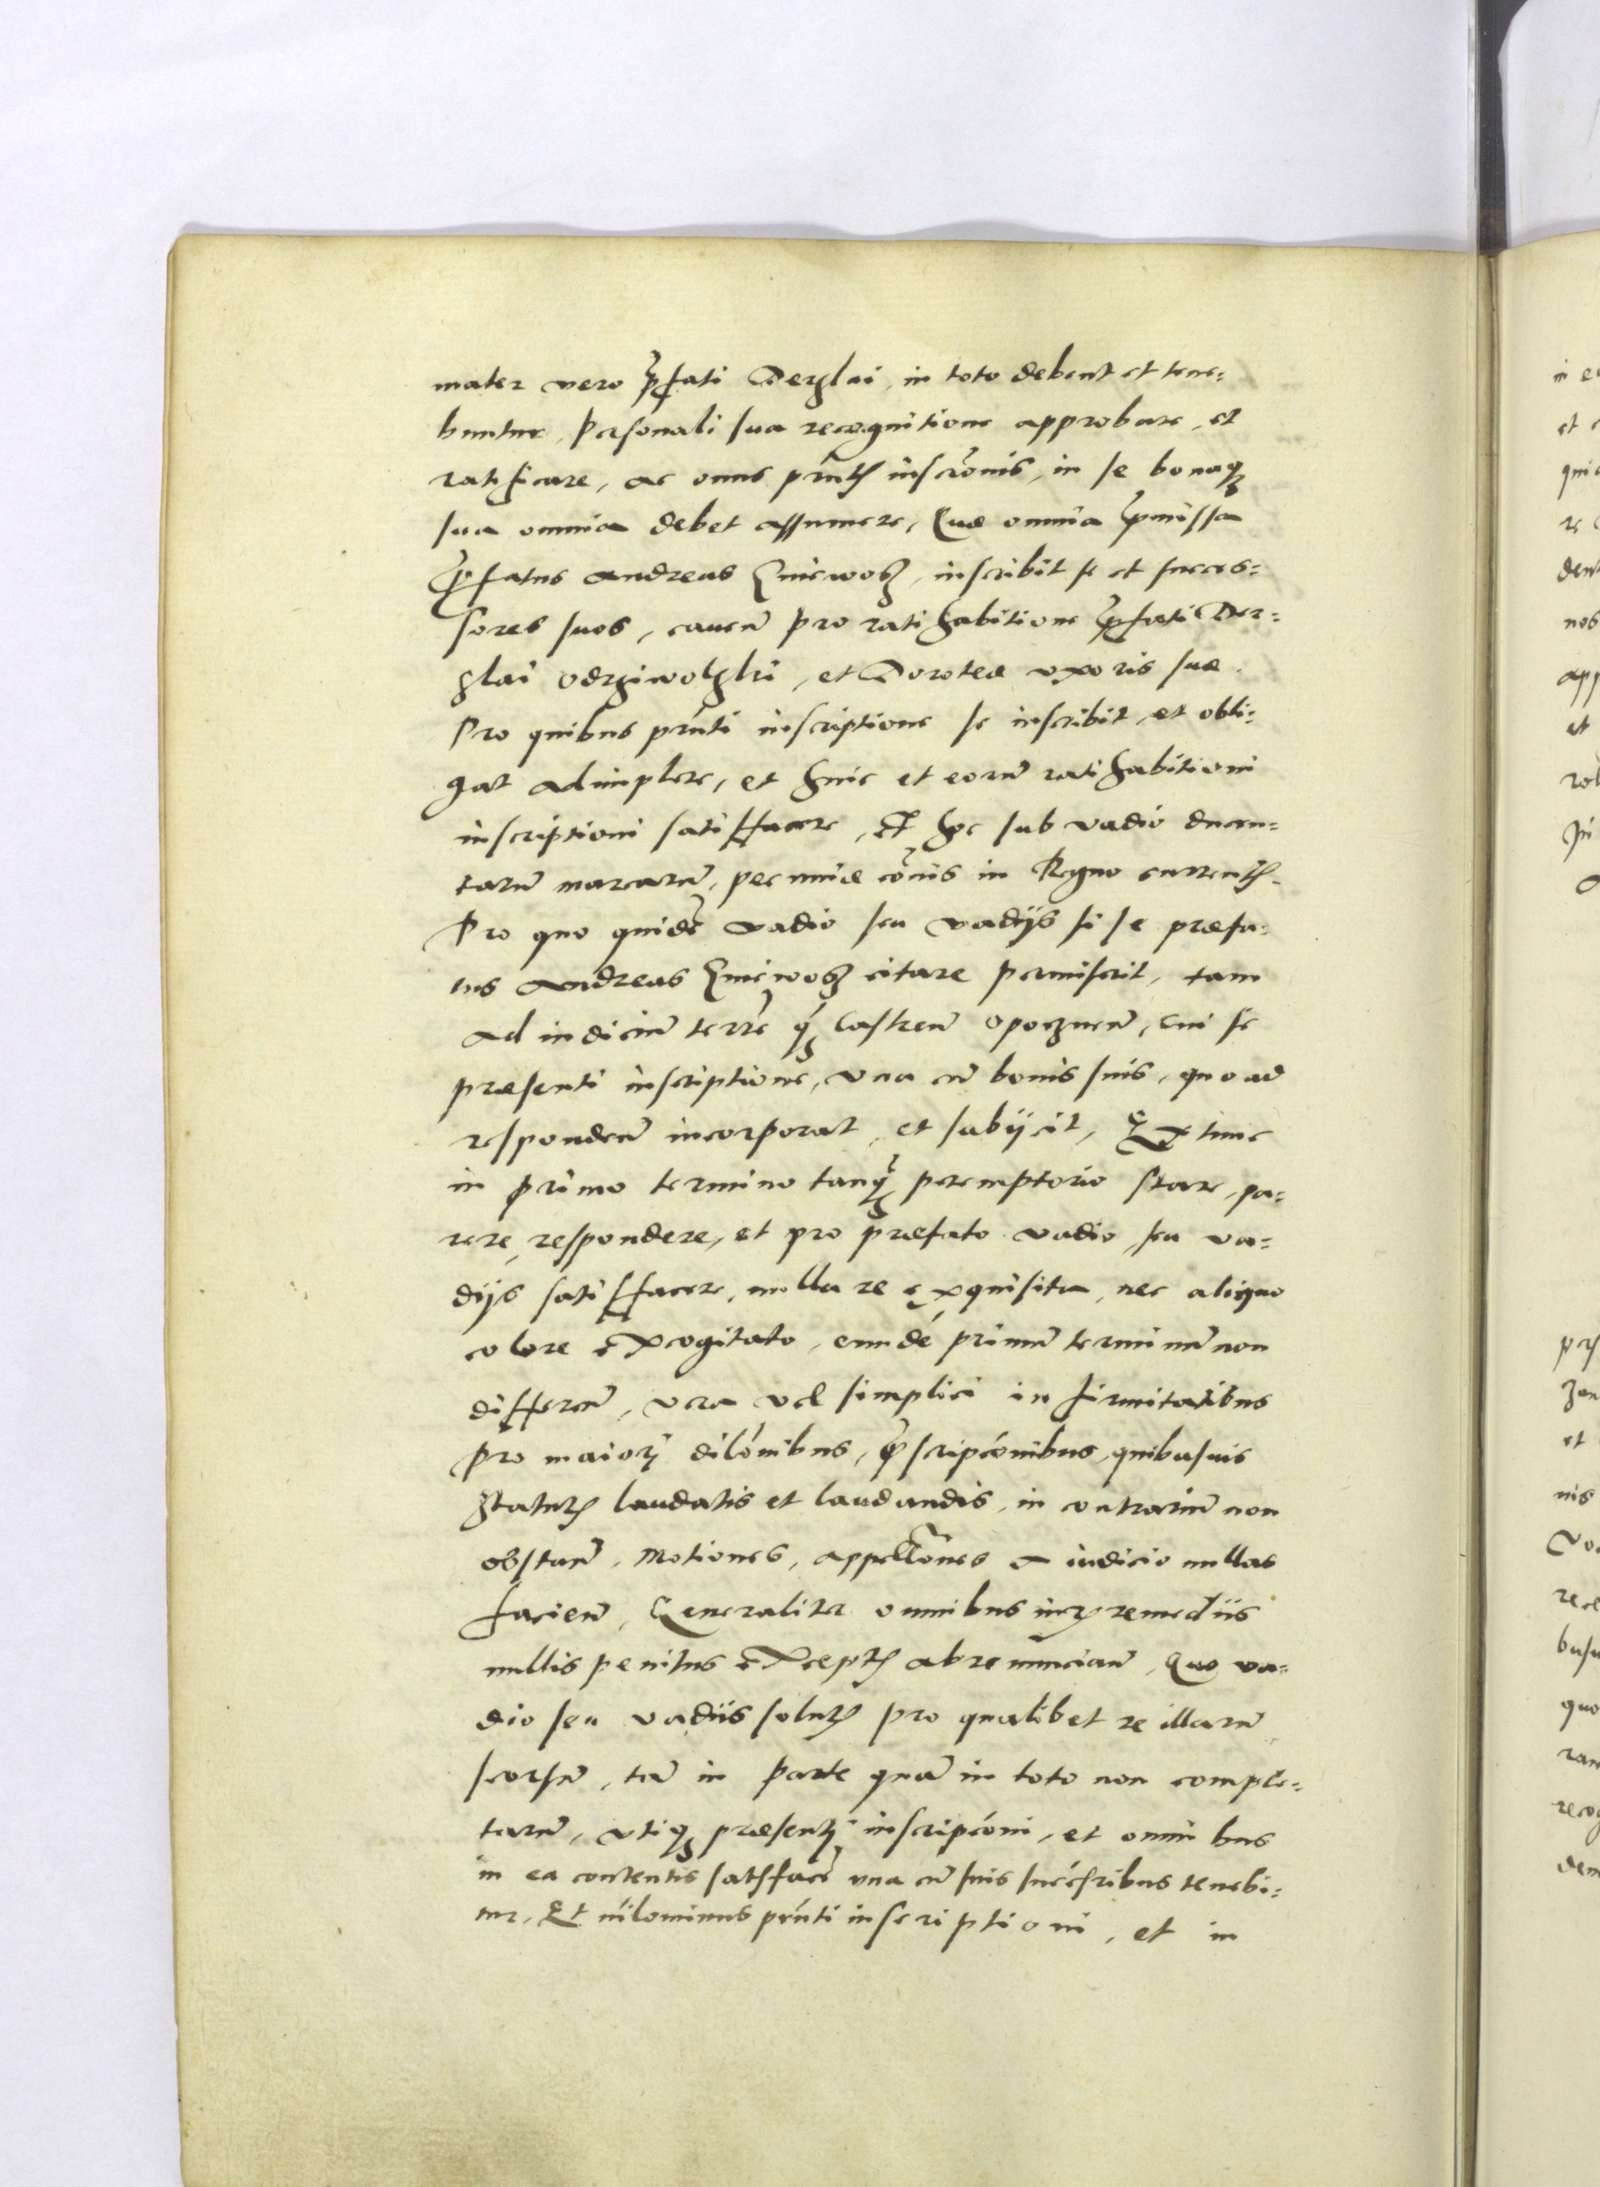 mater vero p̃fati Derslai, in toto debent et tene=
buntur, personali sua recognitione approbare, et
ratificare, ac onus pñtis inscrõnis, in se bonaq3
sua omnia debet assumere, Quæ omnia p̃missa
p̃fatus Andreas inscribit se et succes=
sores suos, cauen̄ pro ratihabitione p̃fati Der=
slai et Doroteæ uxoris suæ.
Pro quibus pñti inscriptione se inscribit, et obli=
gat adimplere, et huic et eorum̄ ratihabitioni
inscriptioni satisfacere, Et hoc sub vadio ducen=
tarum̄ marcarum̄, pecuniæ cõis in Regno currentis.
Pro quo quidẽ vadio seu vadijs si se præfa=
tus Andreas citare permiserit, tam
ad iudicium̄ terrẽ q̃3 Castren̄ Opoczneñ, cui se
præsenti inscriptione, una cum̄ bonis suis, quo ad
responden̄ incorporat, et subijcit, Extunc
in primo termino tanq̃3 peremptorio stare, pa=
rere, respondere, et pro præfato vadio seu va=
dijs satisfacere, nulla re exquisita, nec aliquo
colore excogitato, eundẽ primum̄ terminum̄ non
differen̄, vera vel simplici infirmitatibus
pro maiori dilõnibus, p̃scripcõnibus, quibusuis
statutis laudatis et laudandis, in contrarium̄ non
obstan̄, Motiones, appellõnes a iudicio nullas
facien̄, Generaliter omnibus iuris remediis
nullis penitus exceptis abrenuncian̄, Quo va=
dio seu vadiis solutis pro qualibet re illarum̄
seorsum̄, tam̄ in parte quam̄ in toto non comple=
tarum̄, utiq3 præsenti inscripcõni, et omnibus
in ea contentis satisfacẽ una cum̄ suis succ̃soribus tenebi=
tur, Et nilominus pñti inscriptioni, et in